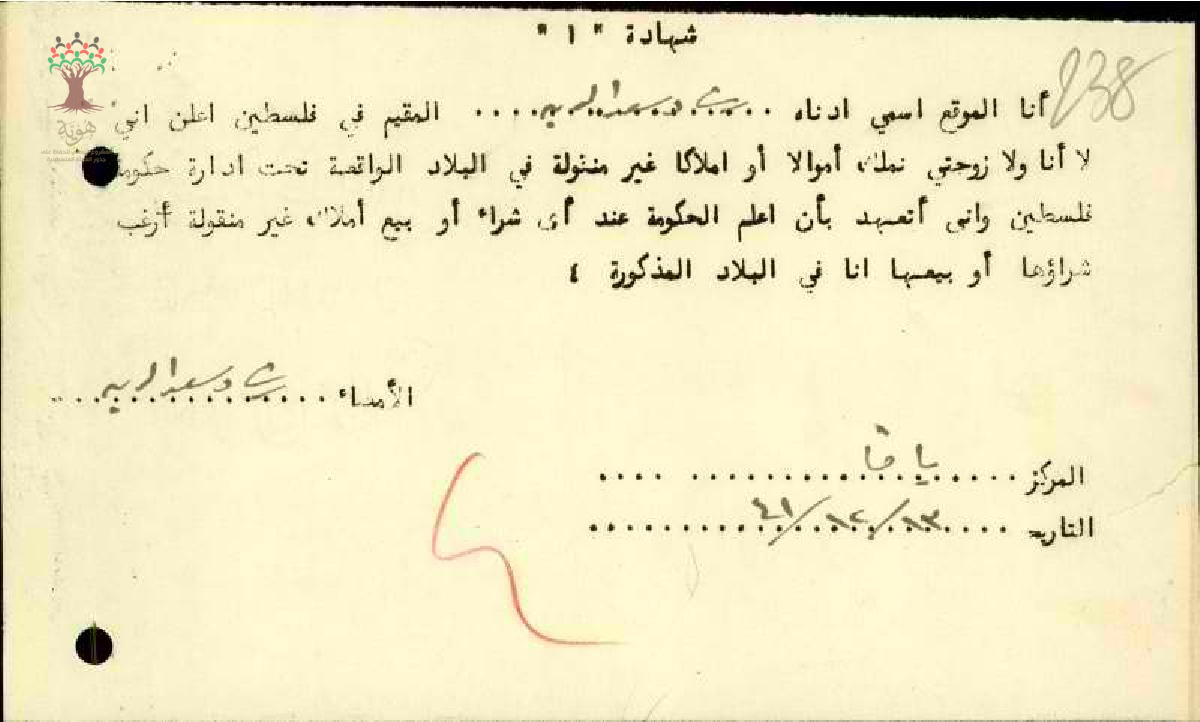 شهادة "١"
238
أنا الموقع اسمي ادناه ..... سعد الدين ..... المقيم في فلسطين اعلن اني
لا أنا ولا زوجتي نملك أموالا أو املاكا غير منقولة في البلاد الواقعة تحت ادارة حكومة
فلسطين واني أتعهد بأن اعلم الحكومة عند أى شراء أو بيع أملاك غير منقولة أرغب
شراؤها أو بيعها انا في البلاد المذكورة ٤
الأمضاء ..... سعد الدين .....
المركز ..... يافا .....
التاريخ ..... ١٣/١٢/٤١ .....
هوية